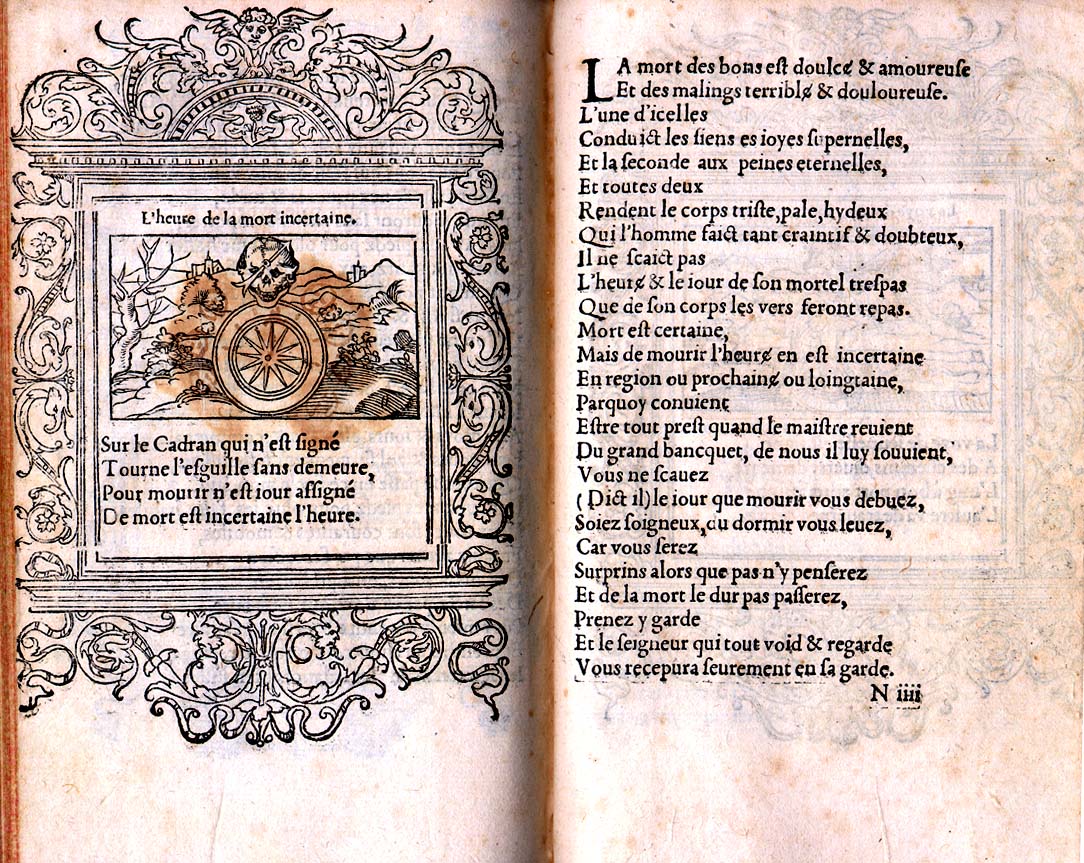 L'heure de la mort incertaine.
Sur le Cadran qui n'est signé
Tourne l'esguille sans demeure,
Pour mourir n'est iour assigné
De mort est incertaine l'heure.
LA mort des bons est doulcɇ & amoureuse
Et des malings terriblɇ & douloureuse.
L'une d'icelles
Conduict les siens es ioyes supernelles,
Et la seconde aux peines eternelles,
Et toutes deux
Rendent le corps triste, pale, hydeux
Qui l'homme faict tant craintif & doubteux,
Il ne scaict pas
L'heurɇ & le iour de son mortel trespas
Que de son corps les vers feront repas.
Mort est certaine,
Mais de mourir l'heurɇ en est incertaine
En region ou prochainɇ ou loingtaine,
Parquoy conuient
Estre tout prest quand le maistre reuient
Du grand bancquet, de nous il luy souuient,
Vous ne scauez
(Dict il) le iour que mourir vous debuez,
Soiez soigneux, du dormir vous leuez,
Car vous serez
Surprins alors que pas n'y penserez
Et de la mort le dur pas passerez,
Prenez y garde
Et le seigneur qui tout void & regarde
Vous recepura seurement en sa garde.
N iiii